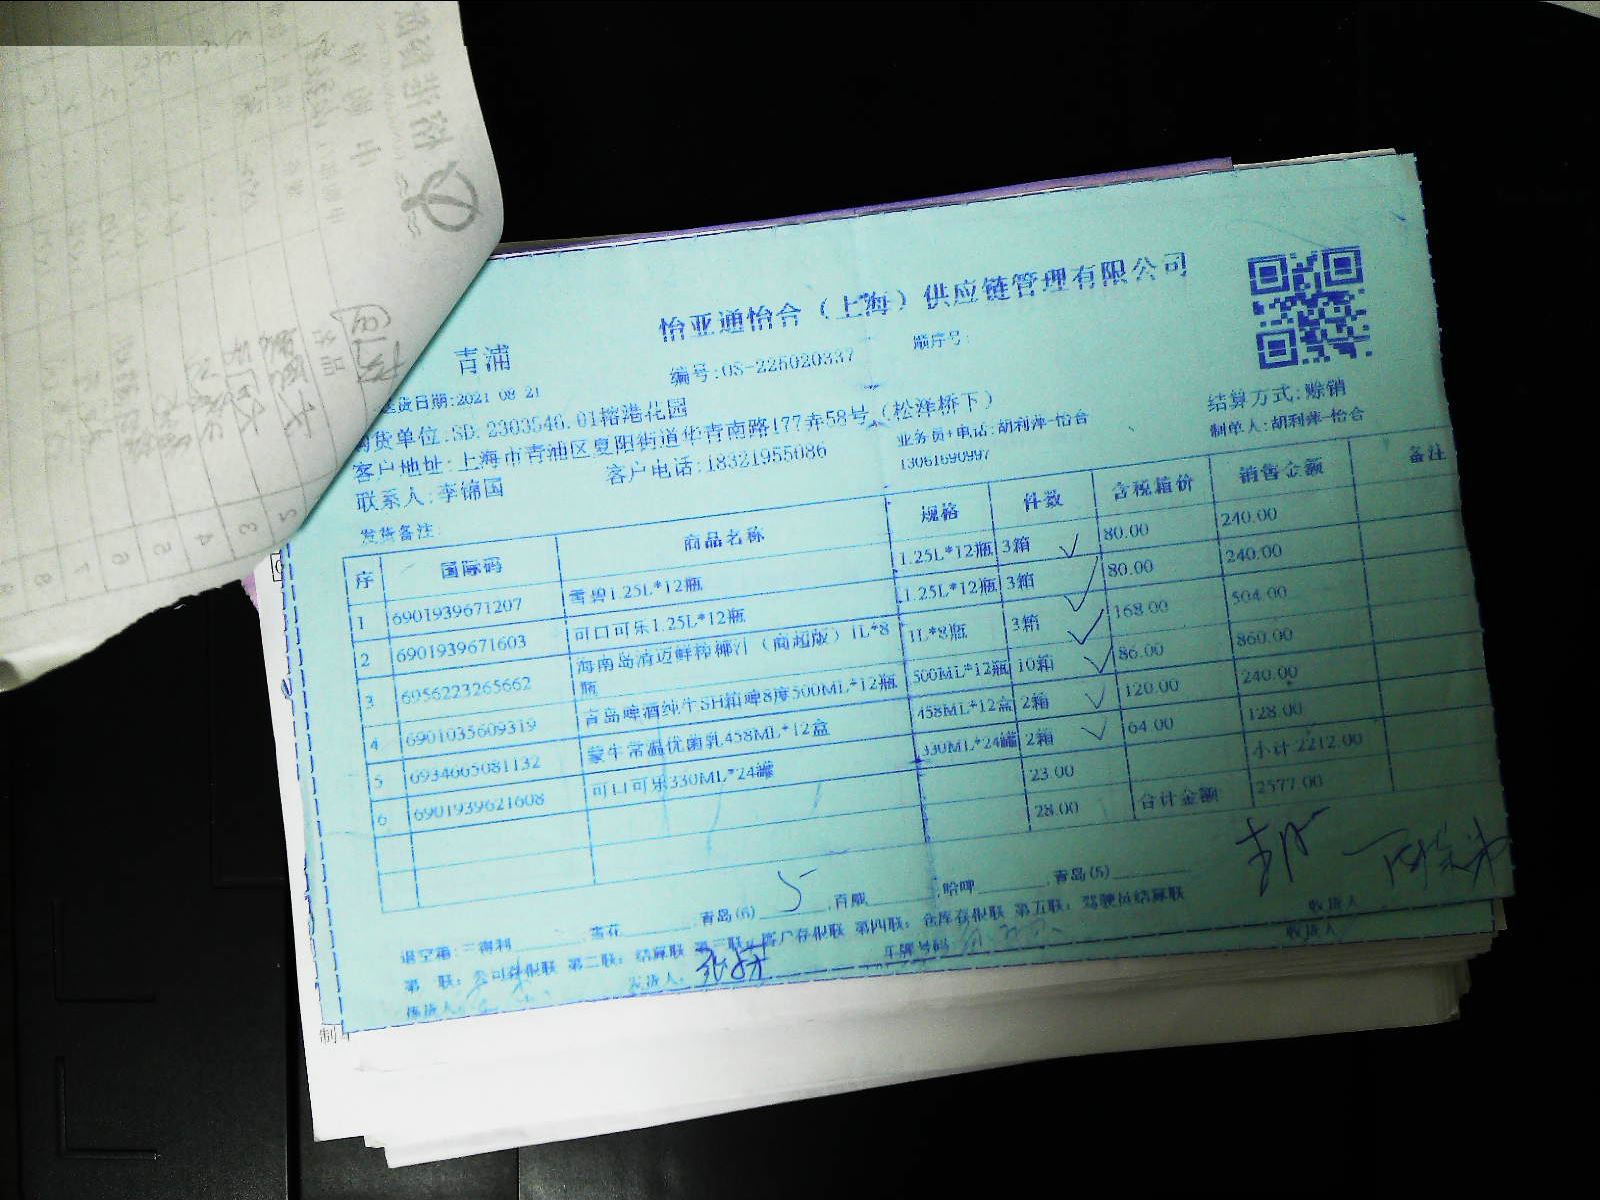 怡亚通怡合（上海）供应链管理有限公司
青浦
编号:OS-225020337 顺序号:
送货日期:2021 08 21
购货单位:SD.2303546.01榕港花园 结算方式:赊销
客户地址:上海市青浦区夏阳街道华青南路177弄58号（松泽桥下） 制单人:胡利萍-怡合
联系人:李锦国 客户电话:18321955086 业务员+电话:胡利萍-怡合
13061690997
发货备注:
序 国际码 商品名称 规格 件数 含税箱价 销售金额 备注
1 6901939671207 雪碧1.25L*12瓶 1.25L*12瓶 3箱 80.00 240.00
2 6901939671603 可口可乐1.25L*12瓶 1.25L*12瓶 3箱 80.00 240.00
3 6956223265662 海南岛清迈鲜榨椰汁（商超版）1L*8瓶 1L*8瓶 3箱 168.00 504.00
4 6901035609319 青岛啤酒纯生SH箱啤8度500ML*12瓶 500ML*12瓶 10箱 86.00 860.00
5 6934665081132 蒙牛常温优菌乳458ML*12盒 458ML*12盒 2箱 120.00 240.00
6 6901939621608 可口可乐330ML*24罐 330ML*24罐 2箱 64.00 128.00
23.00 小计 2212.00
28.00 合计金额 2577.00
退空箱:三得利 雪花 青岛(6) 5 百威 哈啤 青岛(5)
第一联：公司存根联 第二联：结算联 第三联：客户存根联 第四联：仓库存根联 第五联：驾驶员结算联 收货人
拣货人: 发货人: 车牌号码 收货人
制单